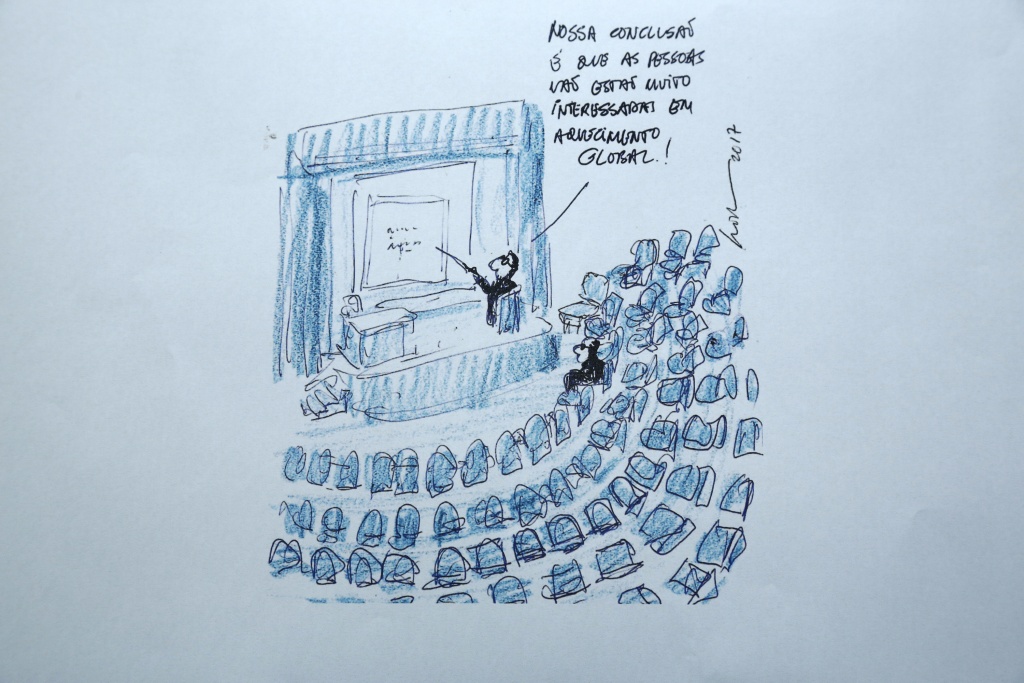 NOSSA CONCLUSAÕ
É QUE AS PESSOAS
NAÕ ESTAÕ MUITO
INTERESSADAS EM
AQUECIMENTO
GLOBAL.!
2017